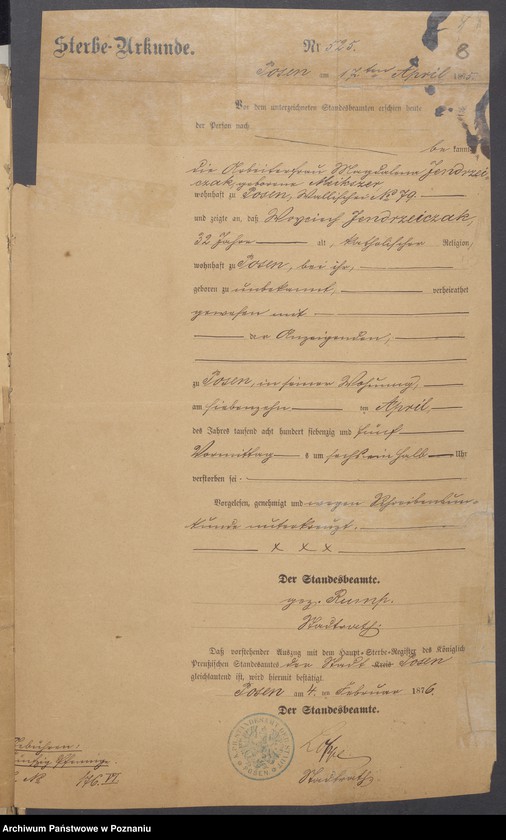 8
Sterbe-Urkunde.
Nr 525.
Posen am 17ten April 187
Vor dem unterzeichneten Standesbeamten erschien heute
der Person nach
be kannt
die Arbeiterfrau Magdalena Jendrzei-
czak, geborene
wohnhaft zu Posen, Wallischei No 79.
und zeigte an, daß Woyciech Jendrzeiczak,
32 Jahre alt, katholischer Religion,
wohnhaft zu Posen, bei ihr,
geboren zu unbekannt, verheirathet
gewesen mit
der Anzeigenden,
zu Posen, in seiner Wohnung,
am siebenzehn ten April
des Jahres tausend acht hundert siebenzig und fünf
Vormittag s um sechs ein halb Uhr
verstorben sei
Vorgelesen, genehmigt und wegen Schreibensun-
kunde unterkreuzt.
x x x
Der Standesbeamte.
gez. Rump.
Stadtrath.
Daß vorstehender Auszug mit dem Haupt-Sterbe-Register des Königlich
Preußischen Standesamts der Stadt Kreis Posen
gleichlautend ist, wird hiermit bestätigt.
Posen am 4. ten Februar 1876.
Der Standesbeamte.
Stadtrath.
ebühren:
ünfzig Pfennige.
No 176.VI
POSEN
Archiwum Państwowe w Poznaniu